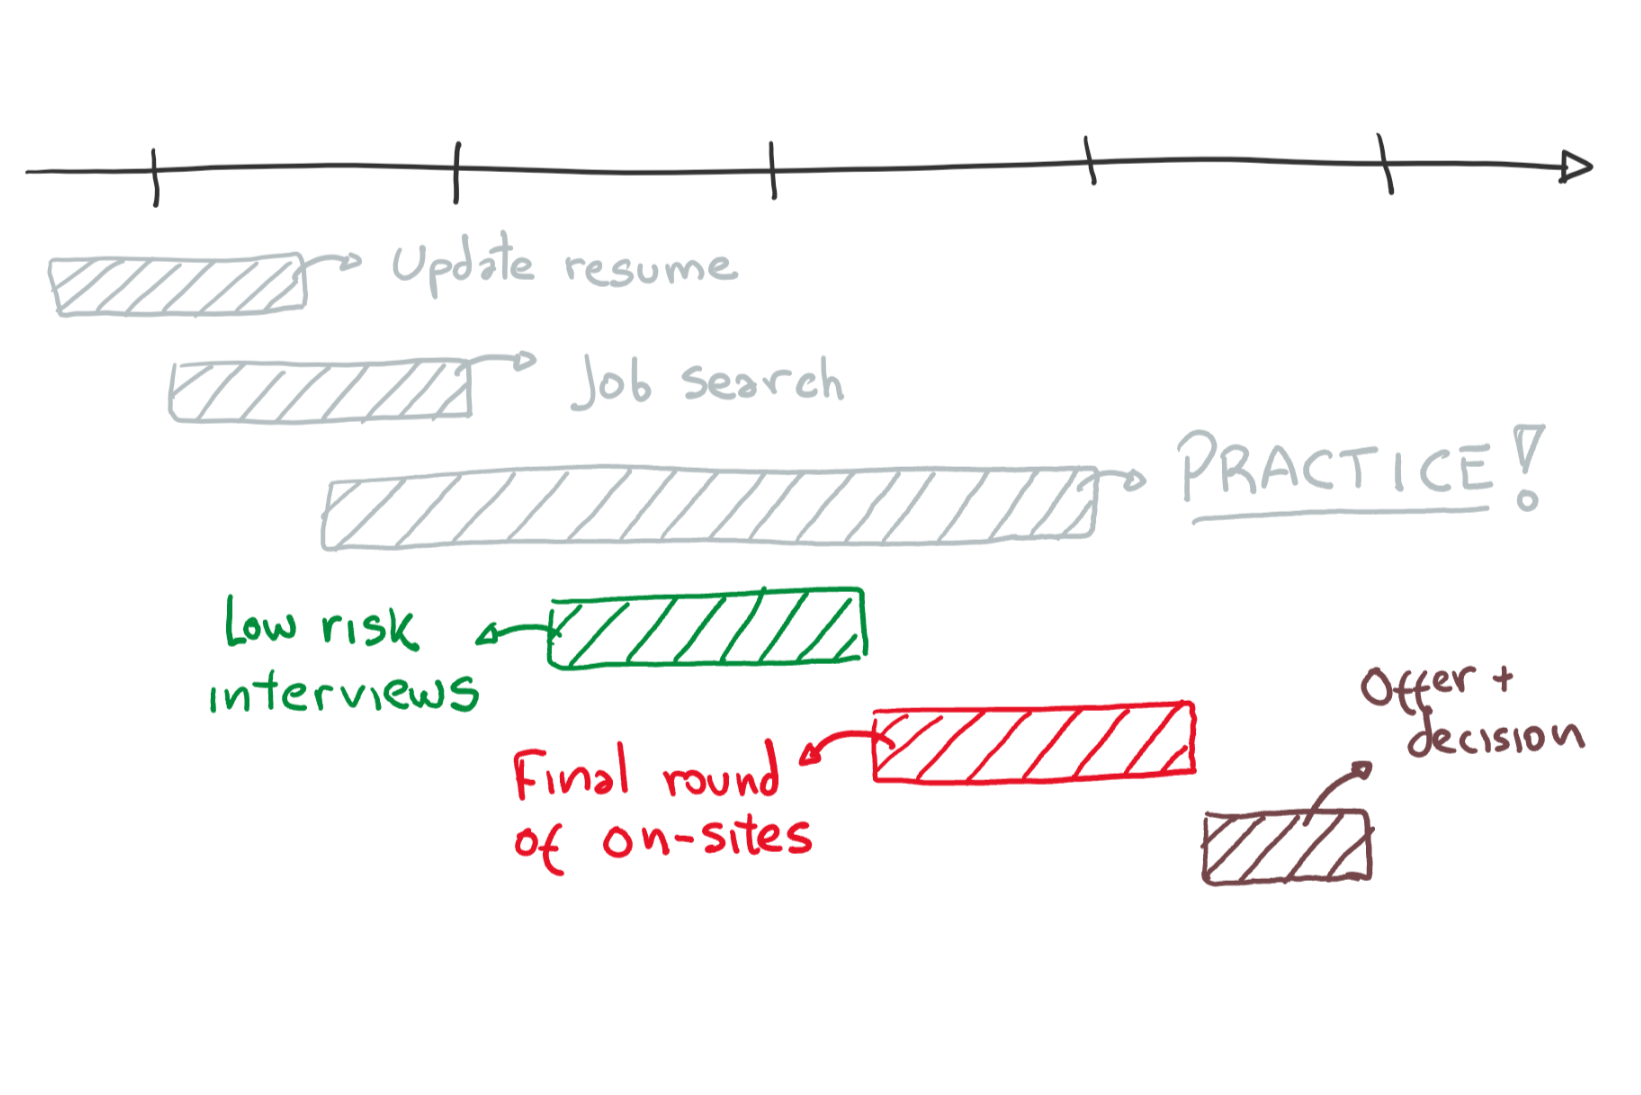 Update resume
Job search
PRACTICE!
Low risk
interviews
Final round
of on-sites
Offer +
decision